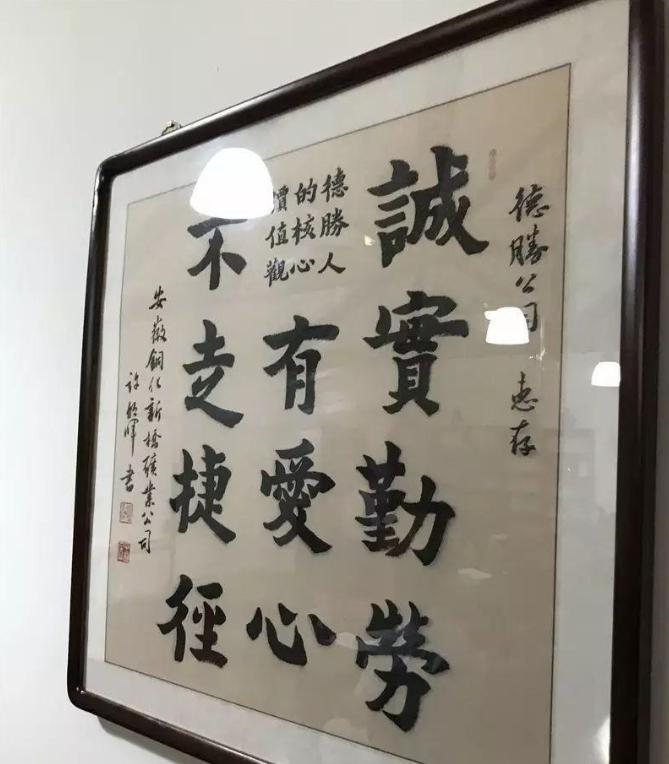 德勝公司 惠存
誠實勤勞
德勝人
的核心
價值觀
有愛心
不走捷徑
安徽銅化新橋礦業公司
許 暉 書